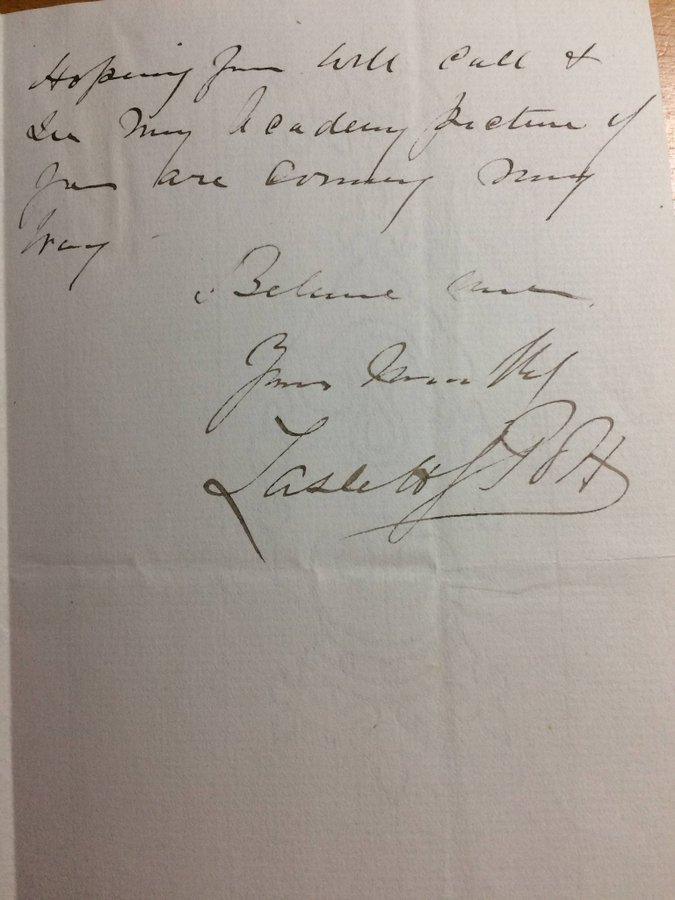 Hoping you will call &
see my Academy picture if
you are coming my
way
Believe me
Yours truly
Laslett J Pott